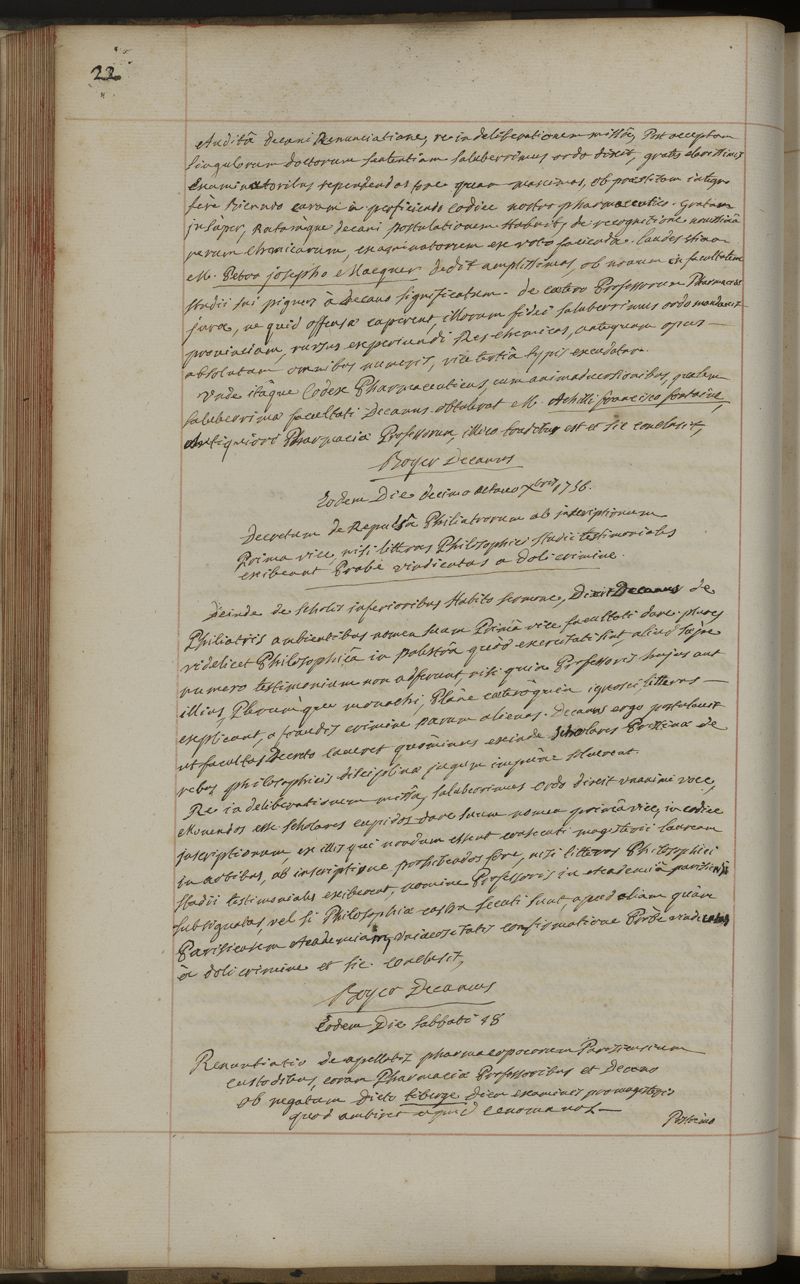 22
Auditâ Decani Renunciatione, re in deliberationem missâ, Post acceptam
singulorum doctorum sententiam saluberrimus ordo dixit, grates clarissimis
Examinatoribus rependendas fore quam maximas, ob præstitam integro
fere Biennio curam in perficiendo codice nostro pharmaceutico. Gratam
insuper, Ratamque decani postulationem Habuit, de recognitione novissimâ
rerum Chemicarum, examinatorum ex voto faciendâ. laudes etiam
M. Petro josepho Macquer dedit amplissimas, ob novum in facultatem
studii sui pignus à Decano significatum. De cætero Professorum Pharmaciæ
jura, ne quid offensæ caperent, illorum fidei saluberrimus ordo mandavit
provinciam, rursus experiundi Res chemicas, antequam opus
absolutum omnibus numeris, vice tertiâ typis excudatur.
Unde itâque Codex Pharmaceuticus, cum animadversionibus, qualem
saluberrimæ facultati Decanus obtulerat M. Achilli francisco fontaine,
Antiquiori Pharmaciæ Professorum, illico traditus est et sic conclusit,
Boyer Decanus
Eodem Die decimo octavo Xbris 1756.
Decretum de Repulsâ Philiatrorum ab inscriptionum
Prima vice, nisi litteras Philosophici studii testimoniales
exibeant Probè vindicatas a doli crimine.
Deinde de scholis inferioribus Habito sermone, Dixit Decanus de
Philiatris ambientibus nomen suum Primâ vice facultati dare. plures
videlicet Philosophicâ in palæstrâ quòd exercitati sint, aliud sæpe
numero testimonium non adferunt nisi quia Professoris hujus aut
illius, Plerumque monachi, Planè cæteròquin ignoti, litteras
explicant, a fraudis crimine parum alienas. Decanus ergo postulavit
ut facultas Decreto caveret quominus exinde scholares Pristinæ de
rebus philosophicis disciplinæ jugum impunè solverent.
Re in deliberationem missâ, saluberrimus Ordo dixit unanimi voce,
Monendos esse scholares cupidos dare suum nomen primâ vice, in codice
inscriptionum, ex illis qui nondum essent consecuti magisterii lauream
in artibus, ab inscriptione prohibendos fore, nisi litteras Philosophici
studii testimoniales exiberent, nomine Professoris in academiâ parisiensi
subsignatas, vel si Philosophiæ castra secuti sunt, apud aliam quàm
Parisiensem Academiam, universitatis confirmatione Probè vindicatas
à doli crimine et sic conclusit,
Boyer Decanus
Eodem Die sabbati 18
Renuntiatio de apellatis pharmacopoeorum Parisiensium
custodibus, coram Pharmaciæ Professoribus et Decano
ob negatum dicto Leberge diem examinis pro magisterio
quod ambiret apud cenomanos.
Postremo